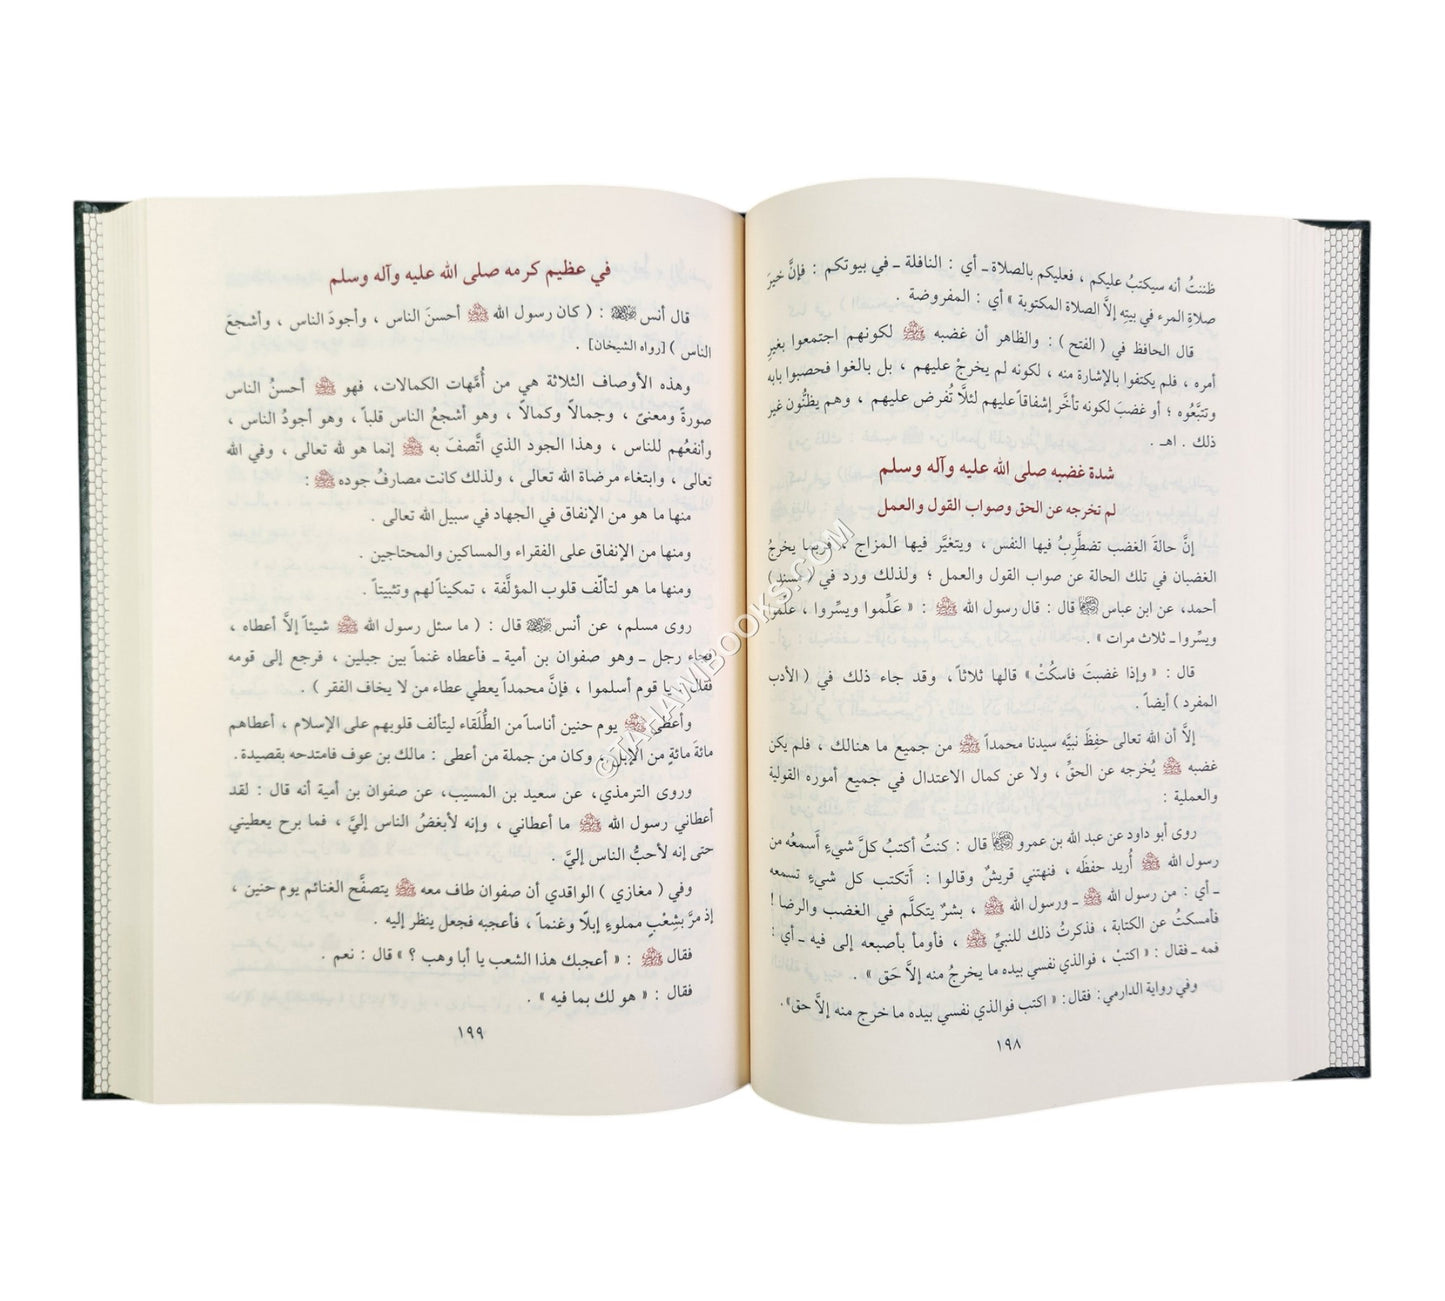 ظننتُ أنه سيكتبُ عليكم ، فعليكم بالصلاة ـ أي : النافلة ـ في بيوتكم : فإنَّ خيرَ
صلاةِ المرء في بيتِه إلاَّ الصلاة المكتوبة » أي : المفروضة .
قال الحافظ في ( الفتح ) : والظاهر أن غضبه ﷺ لكونهم اجتمعوا بغيرِ
أمره ، فلم يكتفوا بالإشارة منه ، لكونه لم يخرجْ عليهم ، بل بالغوا فحصبوا بابه
وتتبَّعُوه ؛ أو غضبَ لكونه تأخَّر إشفاقاً عليهم لئلَّا تُفرض عليهم ، وهم يظنُّون غير
ذلك . اهـ .
شدة غضبه صلى الله عليه وآله وسلم
لم تخرجه عن الحق وصواب القول والعمل
إنَّ حالةَ الغضب تضطَّرِبُ فيها النفس ، ويتغيَّر فيها المزاج ، وربما يخرجُ
الغضبان في تلك الحالة عن صواب القول والعمل ؛ ولذلك ورد في ( مسند )
أحمد، عن ابن عباس رضي الله عنهما قال : قال رسول الله ﷺ : « عَلِّموا ويسِّروا ، علِّموا
ويسِّروا ـ ثلاث مرات » .
قال : « وإذا غضبتَ فاسكُتْ » قالها ثلاثاً ، وقد جاء ذلك في ( الأدب
المفرد ) أيضاً .
إلاَّ أن الله تعالى حفِظَ نبيَّه سيدنا محمداً ﷺ من جميع ما هنالك ، فلم يكن
غضبه ﷺ يُخرجه عن الحقِّ ، ولا عن كمال الاعتدال في جميع أموره القولية
والعملية :
روى أبو داود عن عبد الله بن عمرو رضي الله عنهما قال : كنتُ أكتبُ كلَّ شيءٍ أَسمعُه من
رسول الله ﷺ أُريد حفظَه ، فنهتني قريشٌ وقالوا : أَتكتب كل شيءٍ تسمعه
ـ أي : من رسول الله ﷺ ـ ورسول الله ﷺ ، بشرٌ يتكلَّم في الغضب والرضا !
فأمسكتُ عن الكتابة ، فذكرتُ ذلك للنبيِّ ﷺ ، فأومأ بأصبعه إلى فيه ـ أي :
فمه ـ فقال : « اكتبْ ، فوالذي نفسي بيده ما يخرجُ منه إلاَّ حَق » .
وفي رواية الدارمي : فقال : « اكتب فوالذي نفسي بيده ما خرج منه إلاَّ حق» .
١٩٨
في عظيم كرمه صلى الله عليه وآله وسلم
قال أنس رضي الله عنه : ( كان رسول الله ﷺ أحسنَ الناس ، وأجودَ الناس ، وأشجعَ
الناس ) [رواه الشيخان] .
وهذه الأوصاف الثلاثة هي من أُمَّهات الكمالات، فهو ﷺ أحسنُ الناس
صورةً ومعنىً ، وجمالاً وكمالاً ، وهو أشجعُ الناس قلباً ، وهو أجودُ الناس ،
وأنفعُهم للناس ، وهذا الجود الذي اتَّصفَ به ﷺ إنما هو لله تعالى ، وفي الله
تعالى ، وابتغاء مرضاة الله تعالى ، ولذلك كانت مصارفُ جوده ﷺ :
منها ما هو من الإنفاق في الجهاد في سبيل الله تعالى .
ومنها من الإنفاق على الفقراء والمساكين والمحتاجين .
ومنها ما هو لتألّف قلوب المؤلَّفة ، تمكيناً لهم وتثبيتاً .
روى مسلم، عن أنس رضي الله عنه قال : ( ما سئل رسول الله ﷺ شيئاً إلاَّ أعطاه ،
فجاء رجل ـ وهو صفوان بن أمية ـ فأعطاه غنماً بين جبلين ، فرجع إلى قومه
فقال : يا قوم أسلموا ، فإنَّ محمداً يعطي عطاء من لا يخاف الفقر ) .
وأعطى ﷺ يوم حنين أناساً من الطُّلَقاء ليتألف قلوبهم على الإسلام ، أعطاهم
مائةَ مائةٍ من الإبل ، وكان من جملة من أعطى : مالك بن عوف فامتدحه بقصيدة .
وروى الترمذي، عن سعيد بن المسيب، عن صفوان بن أمية أنه قال : لقد
أعطاني رسول الله ﷺ ما أعطاني ، وإنه لأبغضُ الناس إليَّ ، فما برح يعطيني
حتى إنه لأحبُّ الناس إليَّ .
وفي ( مغازي ) الواقدي أن صفوان طاف معه ﷺ يتصفَّح الغنائم يوم حنين ،
إذ مرَّ بشِعْبٍ مملوءٍ إبلًا وغنماً ، فأعجبه فجعل ينظر إليه .
فقال ﷺ : « أعجبك هذا الشعب يا أبا وهب ؟ » قال : نعم .
فقال : « هو لك بما فيه » .
١٩٩
©TAHAWIBOOKS.COM